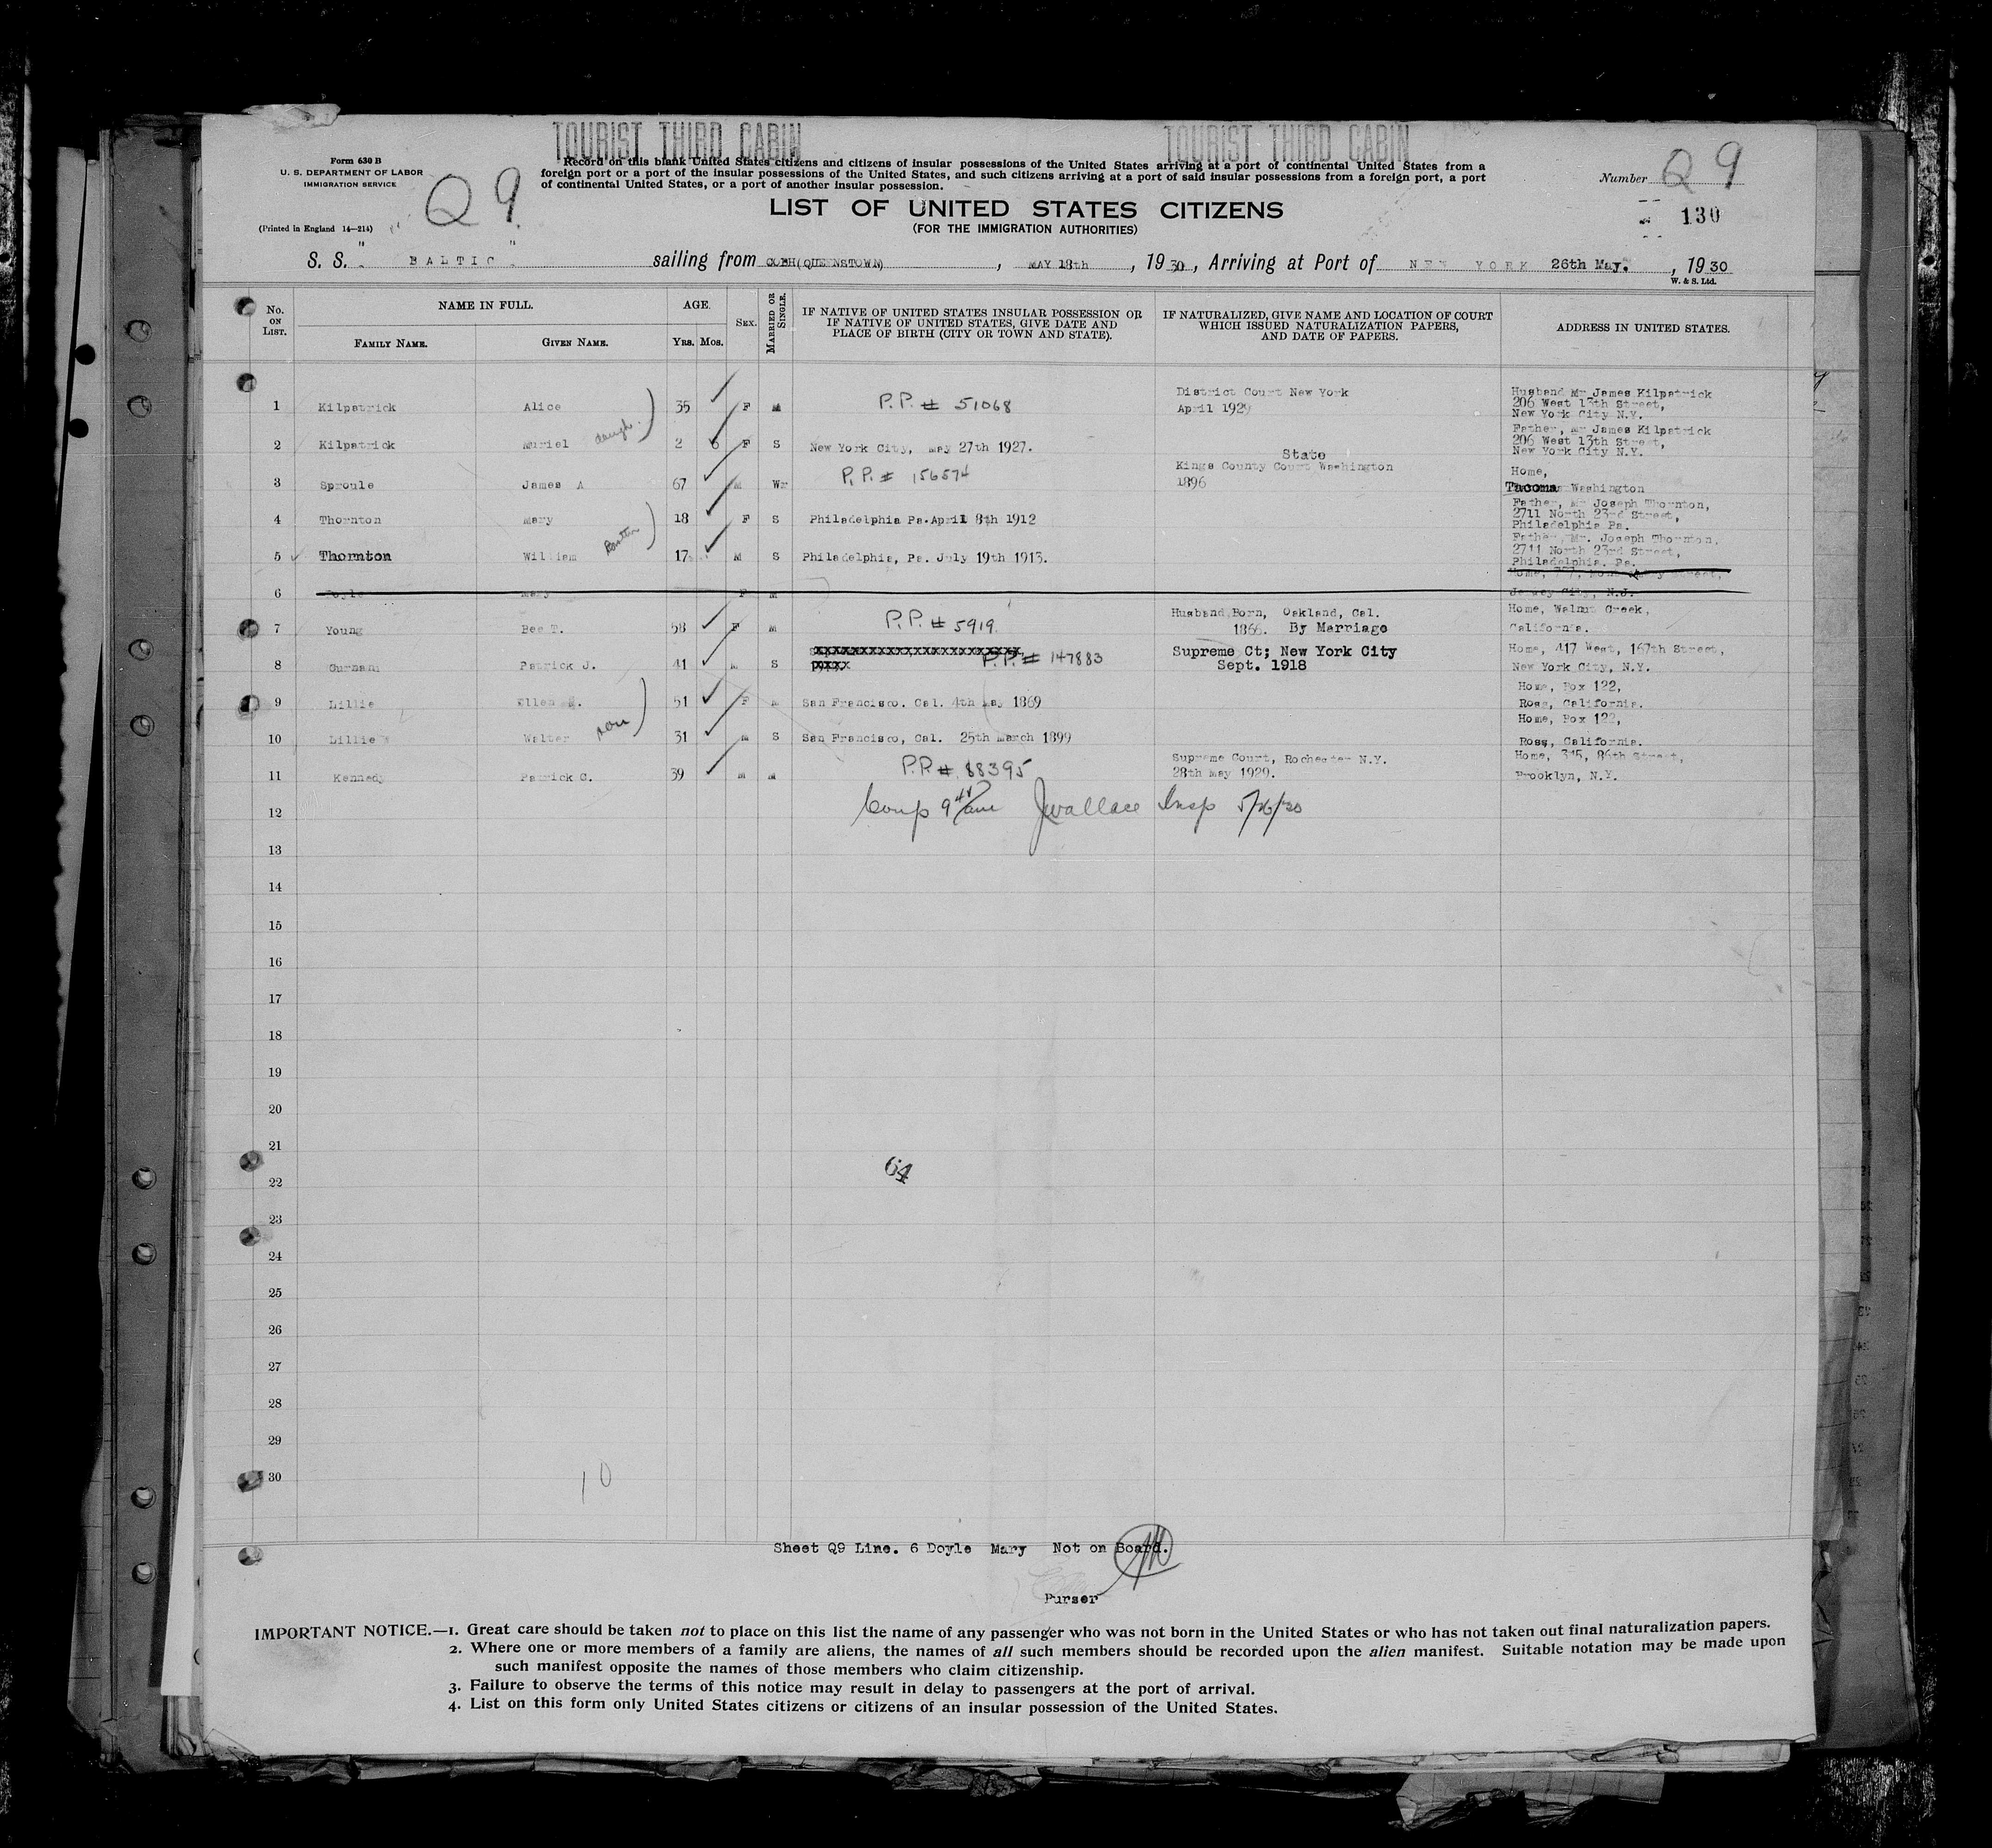 TOURIST THIRD CABIN TOURIST THIRD CABIN
Form 630 B
U. S. DEPARTMENT OF LABOR
IMMIGRATION SERVICE
(Printed in England 14—214)
Q9
Record on this blank United States citizens and citizens of insular possessions of the United States arriving at a port of continental United States from a
foreign port or a port of the insular possessions of the United States, and such citizens arriving at a port of said insular possessions from a foreign port, a port
of continental United States, or a port of another insular possession.
Number Q9
130
LIST OF UNITED STATES CITIZENS
(FOR THE IMMIGRATION AUTHORITIES)
S. S. " BALTIC " sailing from COBH(QUEENSTOWN), MAY 18th, 1930, Arriving at Port of NEW YORK 26th May., 1930
W. & S. Ltd.
No. ON LIST.
NAME IN FULL.
FAMILY NAME. GIVEN NAME.
AGE.
YRS. MOS.
SEX.
MARRIED OR SINGLE.
IF NATIVE OF UNITED STATES INSULAR POSSESSION OR
IF NATIVE OF UNITED STATES, GIVE DATE AND
PLACE OF BIRTH (CITY OR TOWN AND STATE).
IF NATURALIZED, GIVE NAME AND LOCATION OF COURT
WHICH ISSUED NATURALIZATION PAPERS,
AND DATE OF PAPERS.
ADDRESS IN UNITED STATES.
1 Kilpatrick Alice 35 F M P.P. # 51068
District Court New York
April 1929
Husband Mr James Kilpatrick
206 West 13th Street,
New York City N.Y.
2 Kilpatrick Muriel daugh. 2 6 F S New York City, May 27th 1927.
Father, Mr James Kilpatrick
206 West 13th Street,
New York City N.Y.
3 Sproule James A 67 M Wr P.P. # 156574
State
Kings County Court Washington
1896
Home,
Tacoma Washington
4 Thornton Mary 18 F S Philadelphia Pa. April 8th 1912
Father, Mr Joseph Thornton,
2711 North 23rd Street,
Philadelphia Pa.
5 Thornton William 17 M S Philadelphia, Pa. July 19th 1913.
Father, Mr. Joseph Thornton,
2711 North 23rd Street,
Philadelphia. Pa.
6 Doyle Mary F M
Jersey City, N.J.
7 Young Bee T. 58 F M P.P. # 5919
Husband Born, Oakland, Cal.
1866. By Marriage
Home, Walnut Creek,
California.
8 Gurnani Patrick J. 41 M S P.P. # 147883
Supreme Ct; New York City
Sept. 1918
Home, 417 West, 167th Street,
New York City, N.Y.
9 Lillie Ellen 51 F M San Francisco. Cal. 4th May 1869
Home, Box 122,
Ross, California.
10 Lillie Walter son 31 M S San Francisco, Cal. 25th March 1899
Home, Box 122,
Ross, California.
11 Kennedy Patrick C. 39 M M P.P. # 88395
Supreme Court, Rochester N.Y.
28th May 1929.
Home, 345, 86th Street,
Brooklyn, N.Y.
12 Comp 9 am JWallace Insp 5/26/30
13
14
15
16
17
18
19
20
21
22
23
24
25
26
27
28
29
30
64
10
Sheet Q9 Line. 6 Doyle Mary Not on Board.
Purser
IMPORTANT NOTICE.—1. Great care should be taken not to place on this list the name of any passenger who was not born in the United States or who has not taken out final naturalization papers.
2. Where one or more members of a family are aliens, the names of all such members should be recorded upon the alien manifest. Suitable notation may be made upon
such manifest opposite the names of those members who claim citizenship.
3. Failure to observe the terms of this notice may result in delay to passengers at the port of arrival.
4. List on this form only United States citizens or citizens of an insular possession of the United States.